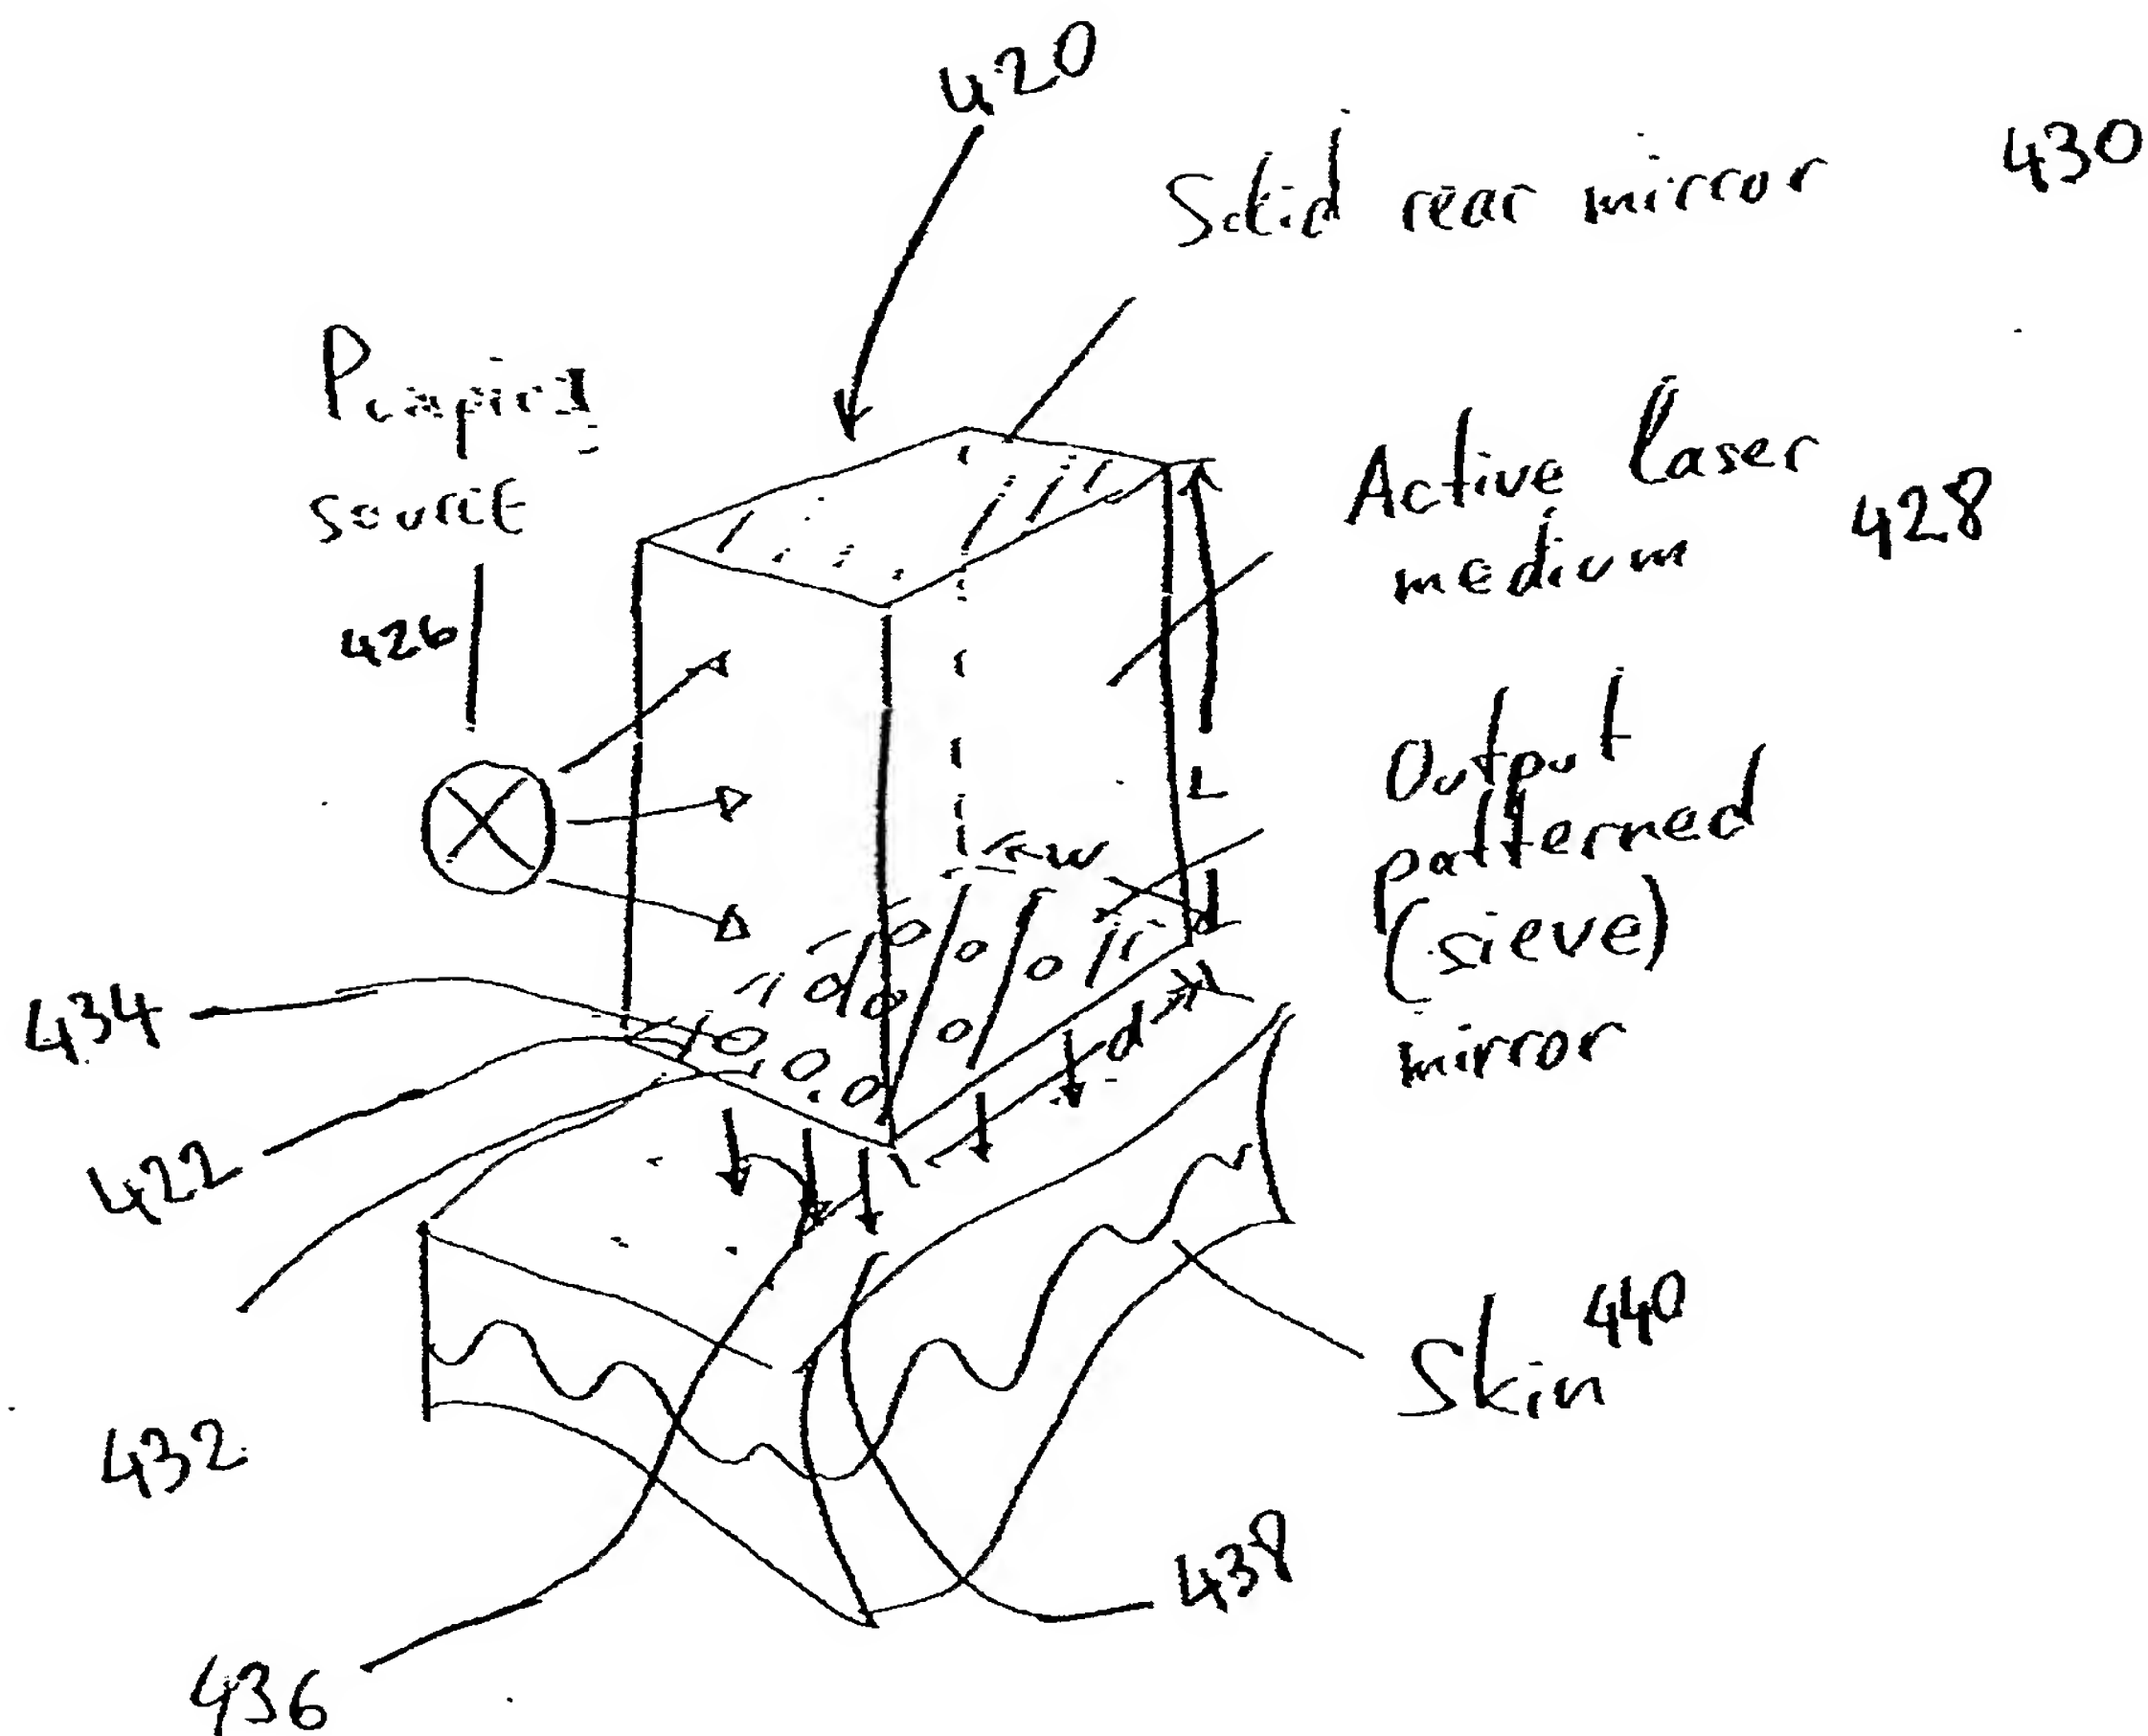 420
Solid rear mirror 430
Pumping
source
426
Active laser
medium 428
Output
patterned
(sieve)
mirror
L
w
d
434
422
432
436
438
Skin 440